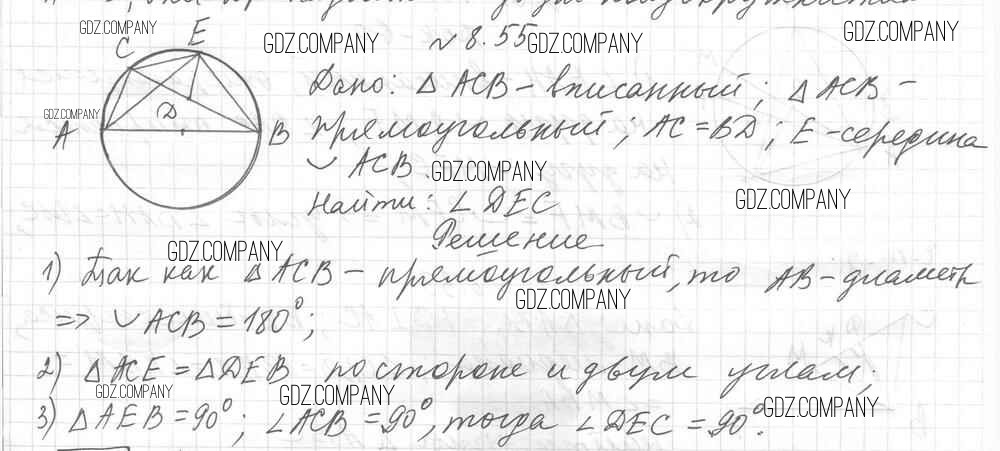 GDZ.COMPANY
GDZ.COMPANY
№ 8.55
GDZ.COMPANY
GDZ.COMPANY
C E
Дано: △ ACB – вписанный; △ ACB –
GDZ.COMPANY
A D B
прямоугольный; AC = BD; E – середина
◡ ACB.
GDZ.COMPANY
GDZ.COMPANY
Найти: ∠ DEC
Решение
GDZ.COMPANY
1) Так как △ ACB – прямоугольный, то AB – диаметр
GDZ.COMPANY
=> ◡ ACB = 180°;
2) △ ACE = △ DEB по стороне и двум углам;
GDZ.COMPANY
GDZ.COMPANY
GDZ.COMPANY
3) △ AEB = 90°; ∠ ACB = 90°, тогда ∠ DEC = 90°.